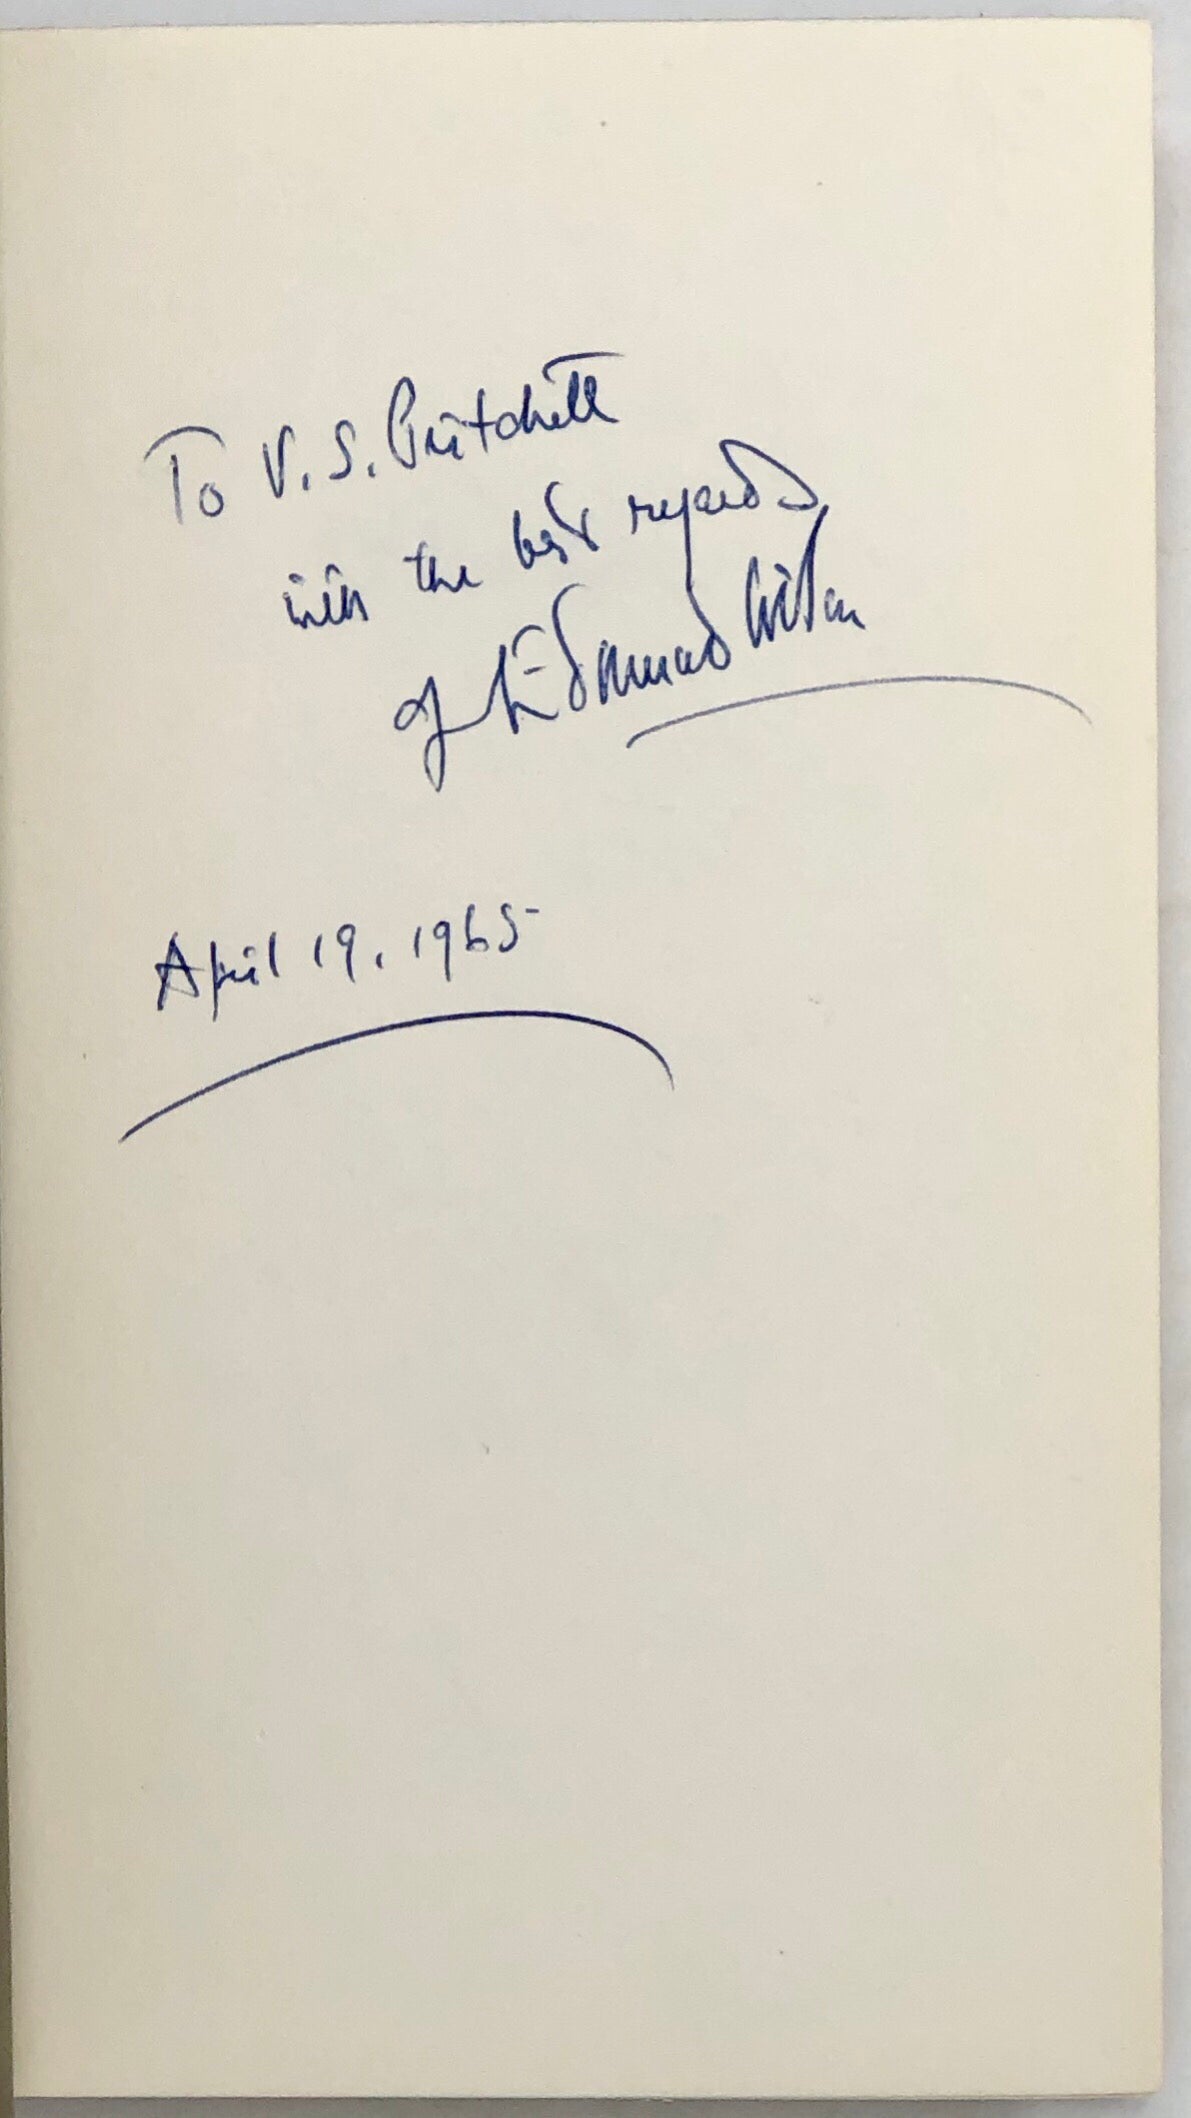 To V. S. Pritchett
with the best regards
of Edmund Wilson
April 19, 1965